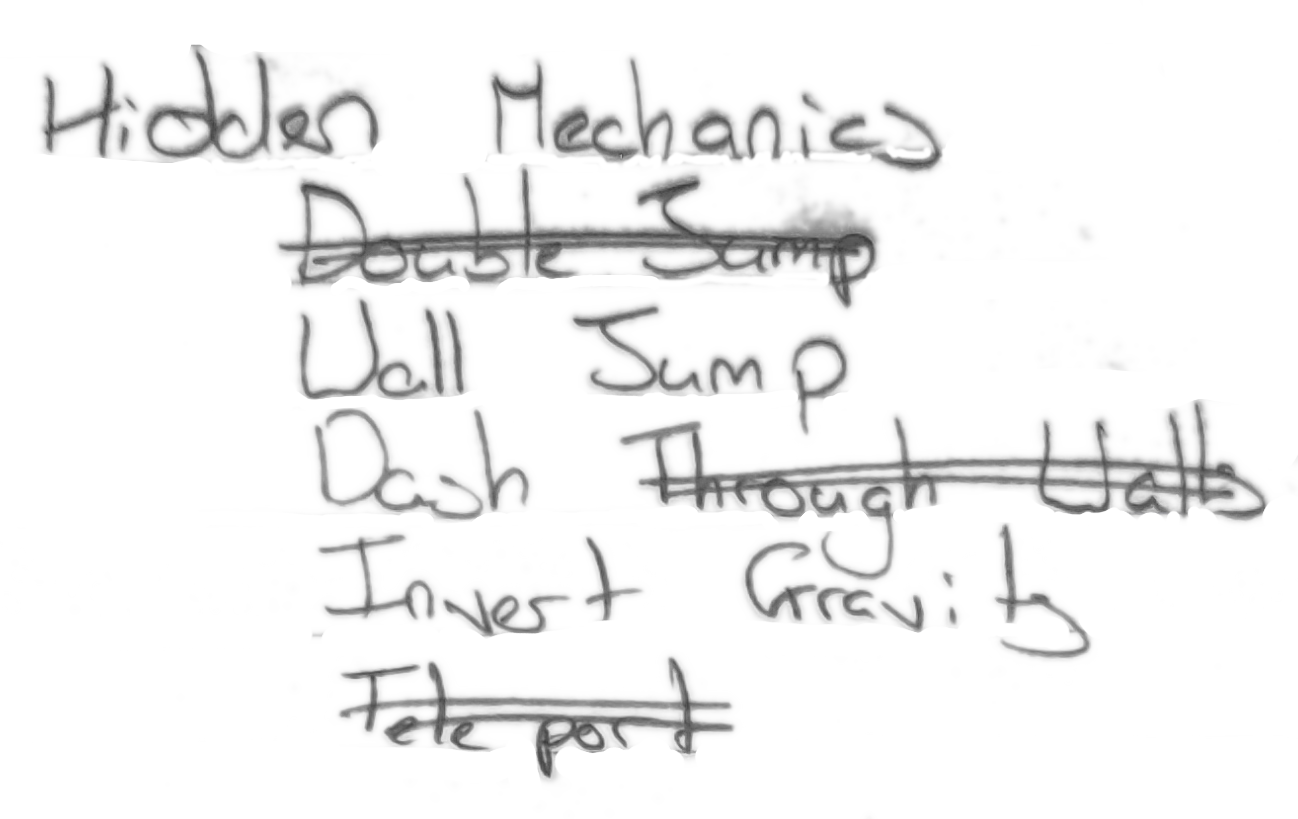 Hidden Mechanics
Double Jump
Wall Jump
Dash Through Walls
Invert Gravity
Teleport